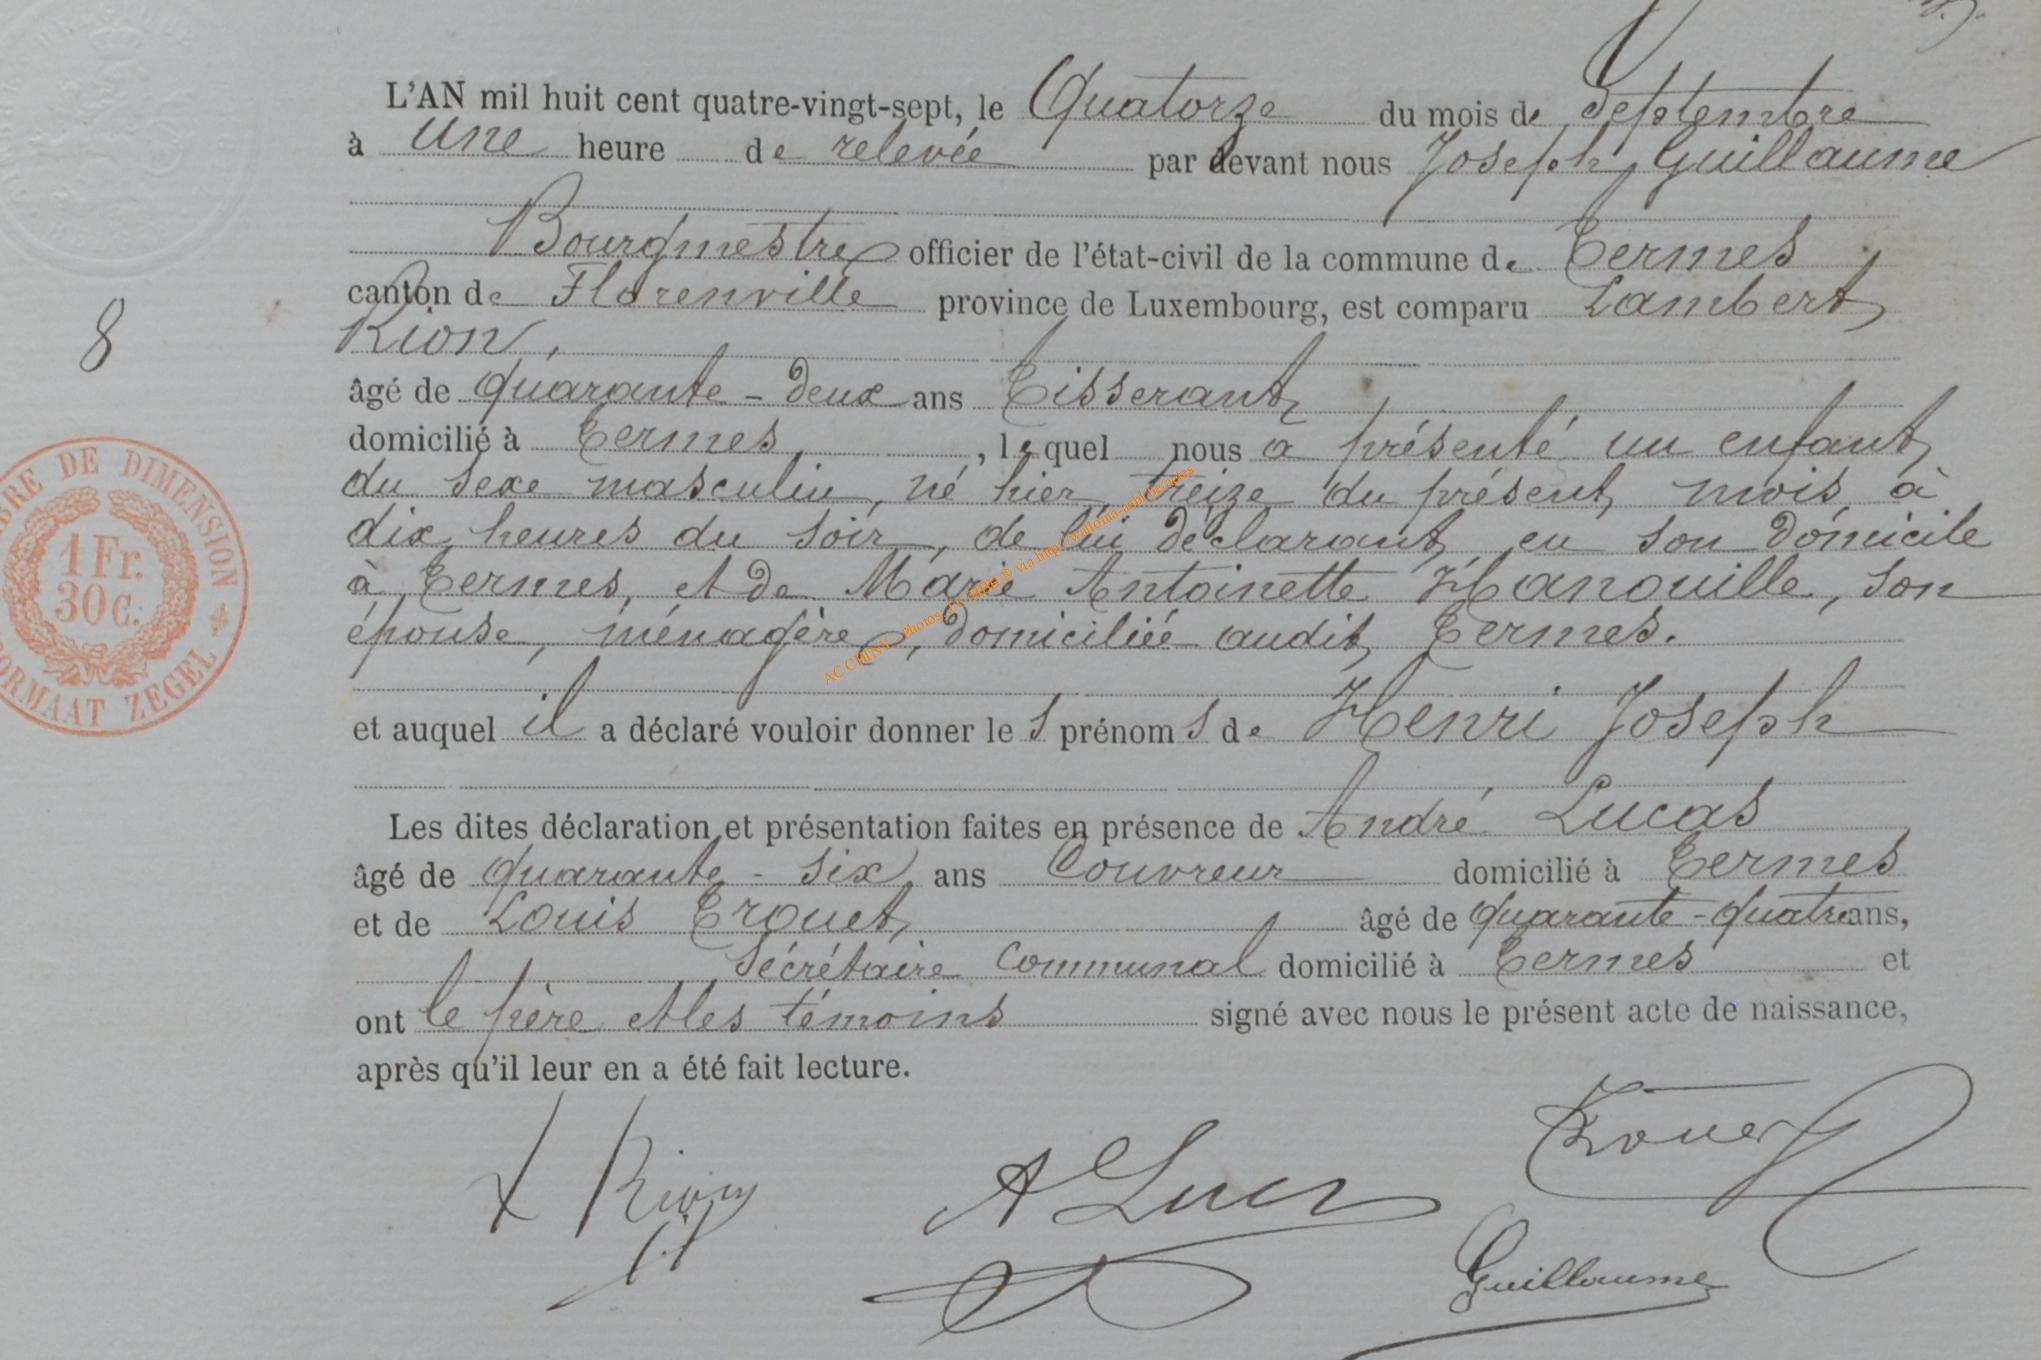 L'AN mil huit cent quatre-vingt-sept, le Quatorze du mois de Septembre
à une heure de relevée par devant nous Joseph Guillaume
Bourgmestre officier de l'état-civil de la commune de Termes
canton de Florenville province de Luxembourg, est comparu Lambert
Rion,
âgé de quarante-deux ans Tisserant
domicilié à Termes, lequel nous a présenté un enfant
8
du sexe masculin, né hier treize du présent mois à
dix heures du soir, de lui déclarant en son domicile
à Termes, et de Marie Antoinette Hanouille, son
épouse, ménagère, domiciliée audit Termes.
et auquel il a déclaré vouloir donner les prénoms de Henri Joseph
Les dites déclaration et présentation faites en présence de André Lucas
âgé de quarante-six ans Couvreur domicilié à Termes
et de Louis Trouet âgé de quarante-quatre ans,
Sécrétaire Communal domicilié à Termes et
ont le père et les témoins signé avec nous le présent acte de naissance,
après qu'il leur en a été fait lecture.
L Rion
A Lucas
Trouet
Guillaume
DE DIMENSION
1 Fr.
30 C.
FORMAAT ZEGEL
AC CHINY Photos
via http://